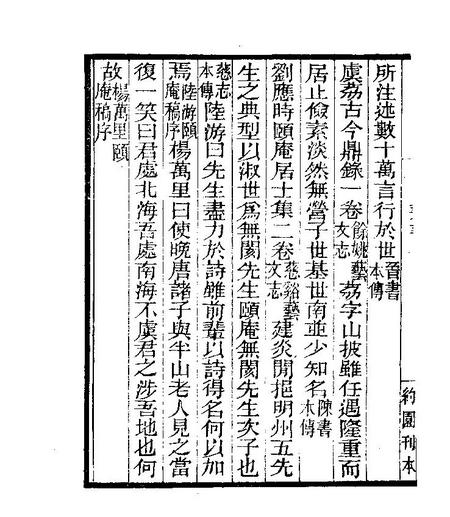 約園刊本
所注述數十萬言行於世晉書本傳
虞荔古今鼎錄一卷餘姚藝文志荔字山披雖任遇隆重而
居止儉素淡然無營子世基世南並少知名陳書本傳
劉應時頤庵居士集二卷慈谿藝文志建炎間摳明州五先
生之典型以淑世爲無閡先生頤庵無閡先生次子也
慈志本傳陸游曰先生盡力於詩雖前輩以詩得名何以加
焉陸游頤庵稿序楊萬里曰使晚唐諸子與半山老人見之當
復一笑曰君處北海吾處南海不虞君之涉吾地也何
故楊萬里頤庵稿序